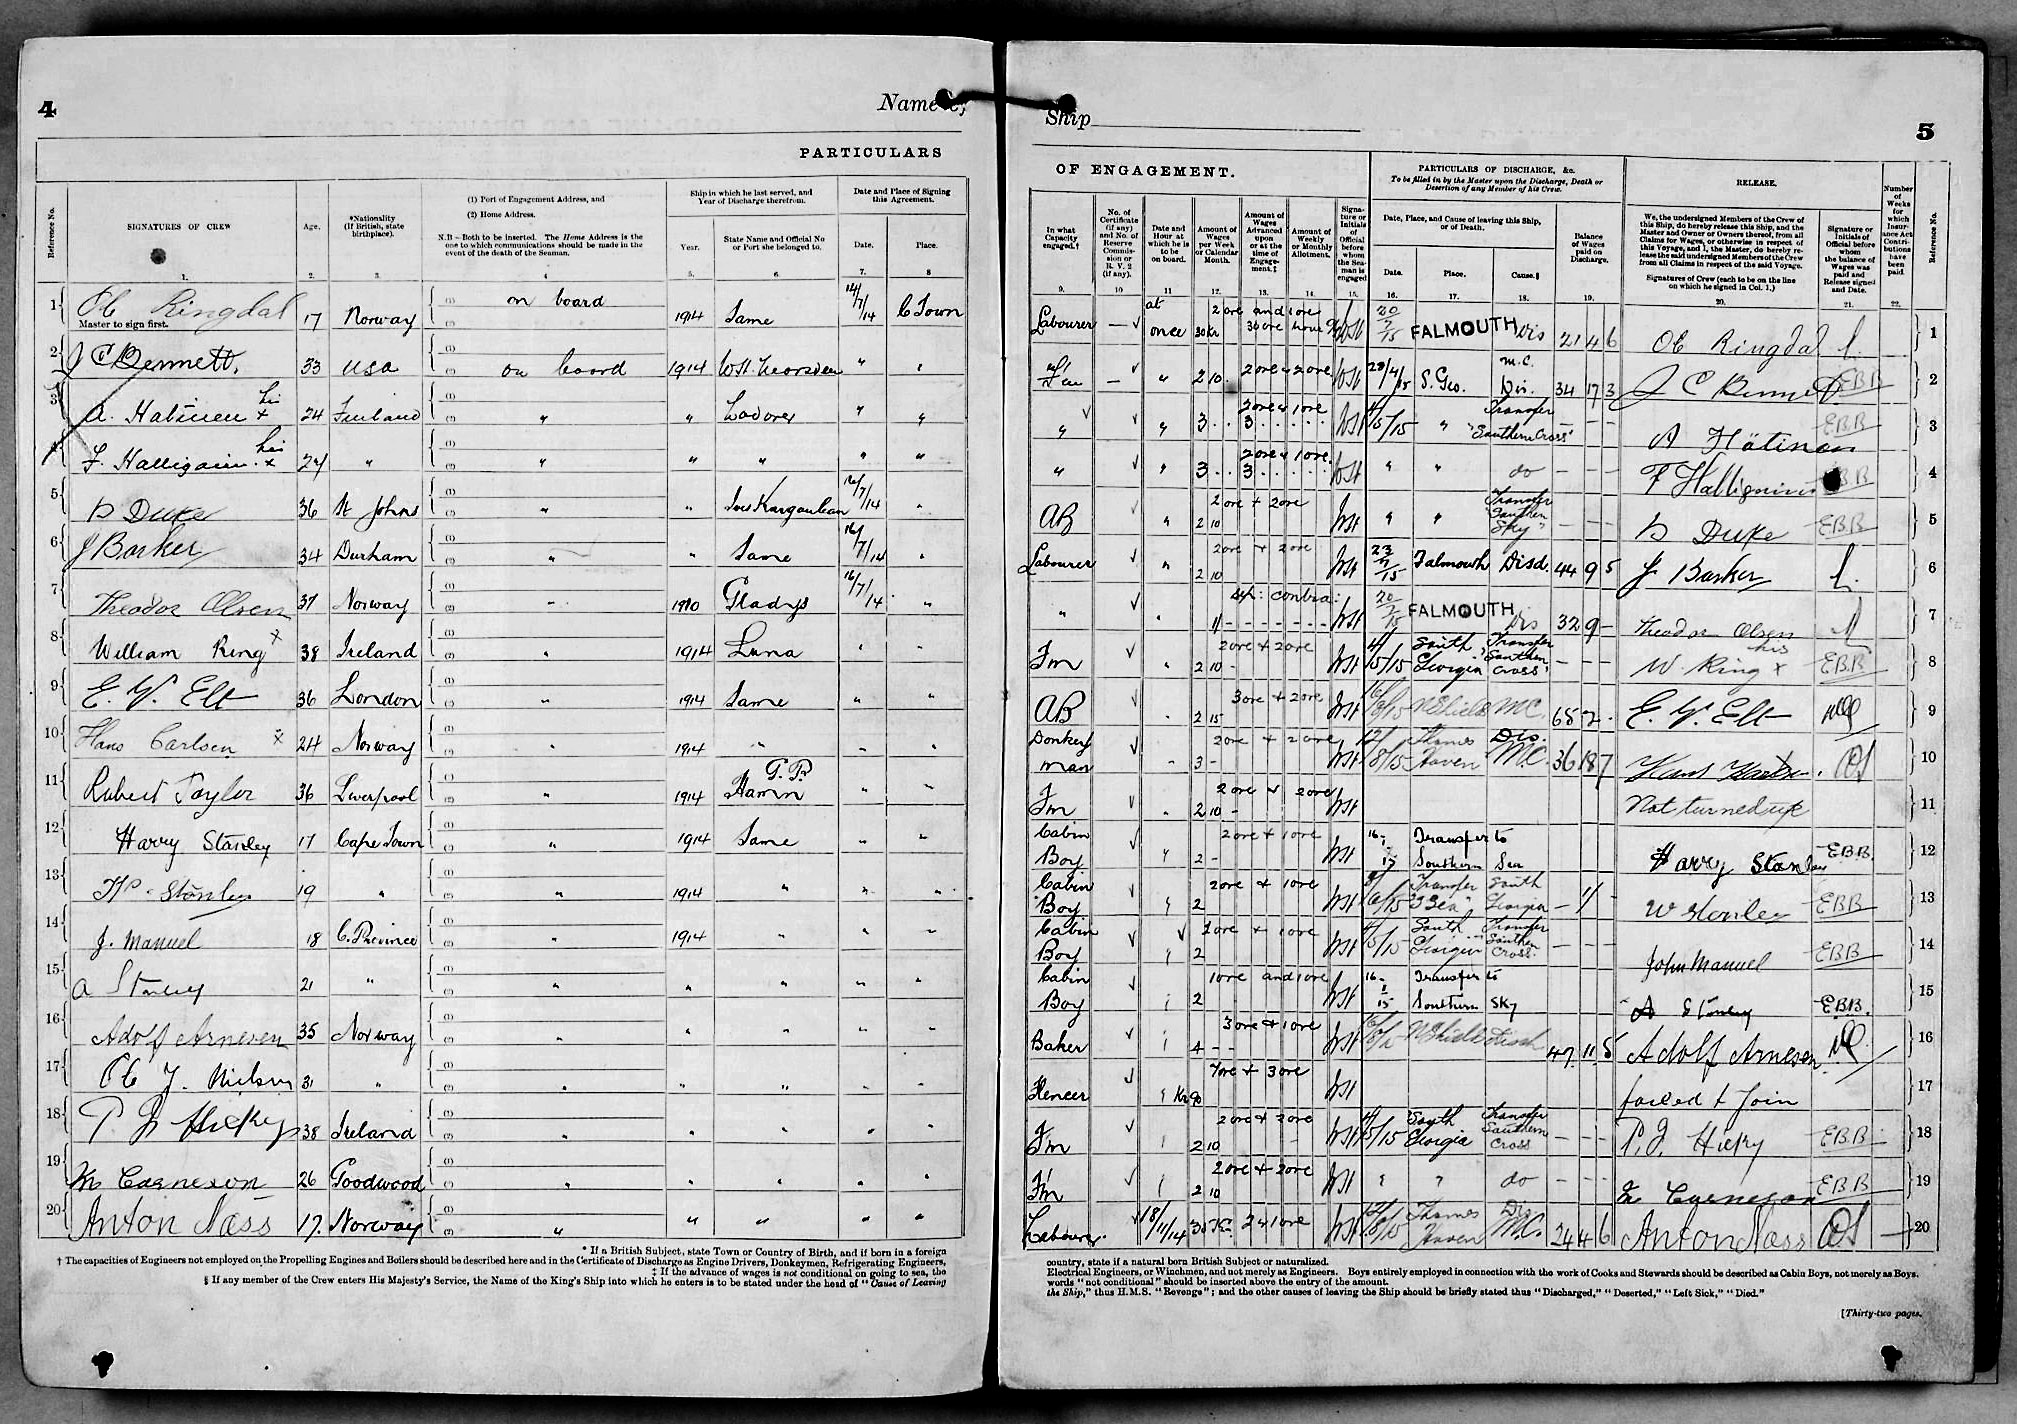 4
Name of
PARTICULARS
Reference No.
SIGNATURES OF CREW
Age.
*Nationality (If British, state birthplace).
(1) Port of Engagement Address, and
(2) Home Address.
N.B—Both to be inserted. The Home Address is the one to which communications should be made in the event of the death of the Seaman.
Ship in which he last served, and Year of Discharge therefrom.
Year.
State Name and Official No or Port she belonged to.
Date and Place of Signing this Agreement.
Date.
Place.
1. 2. 3. 4 5. 6. 7. 8
1 Ole Ringdal 17 Norway on board 1914 Same 14/7/14 C Town
Master to sign first.
2 J C Bennett, 33 USA on board 1914 " "
3 A. Hatinen his x 24 Finland " " Lodorer " "
4 F. Halliganin his x 24 " " " " " "
5 D Duke 36 St Johns " " 16/7/14 "
6 J Barker 34 Durham " " Same 16/7/14 "
7 Theodor Olsen 37 Norway " 1910 Gladys 16/7/14 "
8 William King x 38 Ireland " 1914 Luna " "
9 E. W. Elt 36 London " 1914 Same " "
10 Hans Carlsen x 24 Norway " 1914 " " "
11 Robert Taylor 36 Liverpool " 1914 T.P. Hamm " "
12 Harry Stanley 17 Cape Town " 1914 Same " "
13 Stanley 19 " " 1914 " " "
14 J. Manuel 18 C. Province " 1914 " " "
15 A Stanley 21 " " " " " "
16 Adolf Arnesen 35 Norway " " " " "
17 Ole J. Nielsen 31 " " " " " "
18 P J Hickey 38 Ireland " " " " "
19 M Carneson 26 Goodwood " " " " "
20 Anton Næss 17. Norway " " " " "
* If a British Subject, state Town or Country of Birth, and if born in a foreign
† The capacities of Engineers not employed on the Propelling Engines and Boilers should be described here and in the Certificate of Discharge as Engine Drivers, Donkeymen, Refrigerating Engineers,
‡ If the advance of wages is not conditional on going to sea, the
§ If any member of the Crew enters His Majesty's Service, the Name of the King's Ship into which he enters is to be stated under the head of "Cause of Leaving
Ship
5
OF ENGAGEMENT.
PARTICULARS OF DISCHARGE, &c.
To be filled in by the Master upon the Discharge, Death or Desertion of any Member of his Crew.
RELEASE.
In what Capacity engaged.†
No. of Certificate (if any) and No. of Reserve Commission or R. V. 2 (if any).
Date and Hour at which he is to be on board.
Amount of Wages per Week or Calendar Month.
Amount of Wages Advanced upon or at the time of Engagement.‡
Amount of Weekly or Monthly Allotment.
Signature or Initials of Official before whom the Seaman is engaged
Date, Place, and Cause of leaving this Ship, or of Death.
Date.
Place.
Cause.§
Balance of Wages paid on Discharge.
We, the undersigned Members of the Crew of this Ship, do hereby release this Ship, and the Master and Owner or Owners thereof, from all Claims for Wages, or otherwise in respect of this Voyage, and I, the Master, do hereby release the said undersigned Members of the Crew from all Claims in respect of the said Voyage.
Signatures of Crew (each to be on the line on which he signed in Col. 1.)
Signature or Initials of Official before whom the balance of Wages was paid and Release signed and Date.
Number of Weeks for which Insurance Act Contributions have been paid
Reference No.
9. 10 11 12. 13. 14. 15. 16. 17. 18. 19. 20. 21. 22.
Labourer at once 30 Kr 2 ore and 1 ore 20/7/15 FALMOUTH Dis 21 4 6 Ole Ringdal 1
" 2 10 2 ore & 2 ore 28/4/15 S. Geo. M.C. Dis. 34 17 3 J C Bennett EBB 2
" " 3 2 ore & 1 ore 4/5/15 " Transfer "Southern Cross" A Hätinen EBB 3
" " 3 2 ore & 1 ore " " do F Halliganin EBB 4
AB " 2 10 2 ore + 2 ore " " Transfer "Southern Sky" D Duke EBB 5
Labourer " 2 10 2 ore + 2 ore 23/7/15 Falmouth Disd. 44 9 5 J Barker 6
" " contra: 20/7/15 FALMOUTH Dis 32 9 - Theodor Olsen 7
Fm " 2 10 2 ore + 2 ore 4/5/15 South Georgia Transfer "Southern Cross" W King his x EBB 8
AB " 2 15 3 ore + 2 ore N Shields MC. 65 2 - E. W. Elt 9
Donkey man " 3 - 2 ore + 2 ore 12/8/15 Thames Haven Dis. M.C. 36 18 7 10
Fm " 2 10 - 2 ore & 2 ore Not turned up 11
Cabin Boy " 2 - 2 ore + 1 ore Transfer to Southern Sea Harry Stanley EBB. 12
Cabin Boy " 2 2 ore & 1 ore Transfer "S Sea" South Georgia W Stanley EBB 13
Cabin Boy " 2 1 ore + 1 ore 4/5/15 South Georgia Transfer Southern Cross John Manuel EBB 14
Cabin Boy " 2 1 ore and 1 ore 16/1/15 Transfer to Southern Sky A Stanley EBB. 15
Baker " 4 - - 3 ore & 1 ore N Shields Disch 47 11 5 Adolf Arnesen 16
" Kr 90 7 ore + 3 ore failed to Join 17
Fm " 2 10 2 ore & 2 ore 4/5/15 South Georgia Transfer Southern Cross P. J. Hickey EBB 18
Fm " 2 10 2 ore + 2 ore " " do M Carneson EBB 19
Labourer. 18/11/14 30 Kr. 2 & 1 ore 12/8/15 Thames Haven Dis M.C. 24 4 6 Anton Næss 20
country, state if a natural born British Subject or naturalized.
Electrical Engineers, or Winchmen, and not merely as Engineers. Boys entirely employed in connection with the work of Cooks and Stewards should be described as Cabin Boys, not merely as Boys.
words "not conditional" should be inserted above the entry of the amount.
the Ship," thus H.M.S. "Revenge"; and the other causes of leaving the Ship should be briefly stated thus "Discharged," "Deserted," "Left Sick," "Died."
[Thirty-two pages.